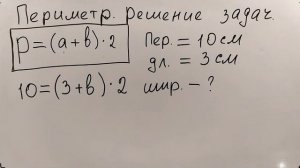 Периметр. Решение задач.
P=(a+b)·2
Пер. = 10 см
дл. = 3 см
10=(3+b)·2
шир. – ?